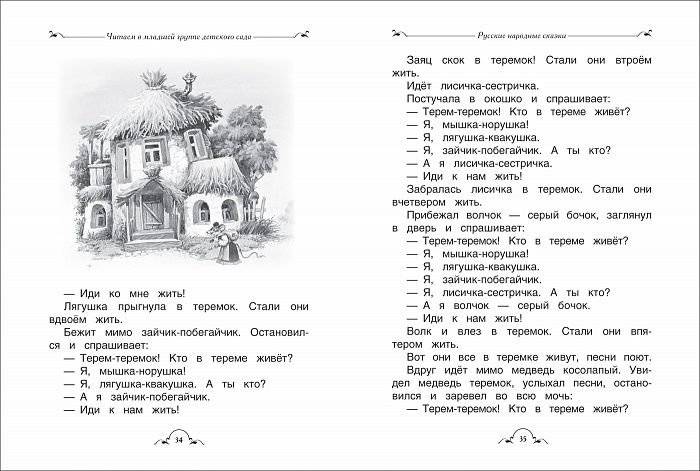 Читаем в младшей группе детского сада
— Иди ко мне жить!
Лягушка прыгнула в теремок. Стали они
вдвоём жить.
Бежит мимо зайчик-побегайчик. Остановил-
ся и спрашивает:
— Терем-теремок! Кто в тереме живёт?
— Я, мышка-норушка!
— Я, лягушка-квакушка. А ты кто?
— А я зайчик-побегайчик.
— Иди к нам жить!
34
Русские народные сказки
Заяц скок в теремок! Стали они втроём
жить.
Идёт лисичка-сестричка.
Постучала в окошко и спрашивает:
— Терем-теремок! Кто в тереме живёт?
— Я, мышка-норушка!
— Я, лягушка-квакушка.
— Я, зайчик-побегайчик. А ты кто?
— А я лисичка-сестричка.
— Иди к нам жить!
Забралась лисичка в теремок. Стали они
вчетвером жить.
Прибежал волчок — серый бочок, заглянул
в дверь и спрашивает:
— Терем-теремок! Кто в тереме живёт?
— Я, мышка-норушка!
— Я, лягушка-квакушка.
— Я, зайчик-побегайчик.
— Я, лисичка-сестричка. А ты кто?
— А я волчок — серый бочок.
— Иди к нам жить!
Волк и влез в теремок. Стали они впя-
тером жить.
Вот они все в теремке живут, песни поют.
Вдруг идёт мимо медведь косолапый. Уви-
дел медведь теремок, услыхал песни, остано-
вился и заревел во всю мочь:
— Терем-теремок! Кто в тереме живёт?
35